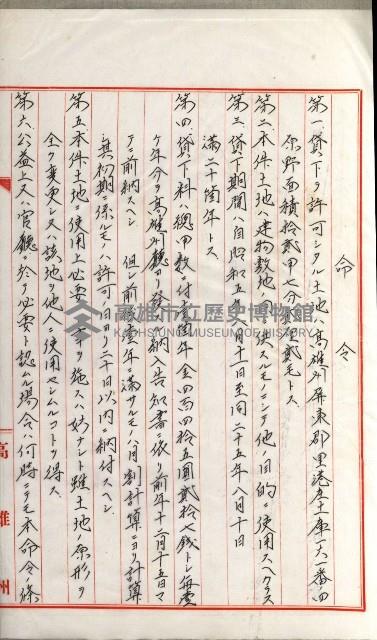 命令
第一、貸下ヲ許可シタル土地ハ高雄州屏東郡里港庄土庫一六一番ノ四
原野面積拾貳甲七分 厘貳毛トス
第二、本件土地ハ建物敷地 使スルモノニシテ他ノ目的ニ使用スヘカラス
第三、貸下期間ハ自昭和五年 月十一日至同二十五年八月十日
満二十箇年トス
第四、貸下料ハ總甲数ニ付壹箇年金四百四拾五圓貳拾七銭トシ毎壹
ケ年分ヲ高雄州廳ヨリ發 納入告知書ニ依リ前年十二月十五日マ
テニ前納スヘシ 但シ前 壹年ニ満サルモノハ月割計算ニヨリ計算
シ其初期ニ係ルモノハ許可ノ日ヨリ二十日以内ニ納付スヘシ
第五、本件土地ニ使用上必要 ヲ施スハ妨ナシト雖土地ノ原形ヲ
全ク變更シ又ハ該地ヲ他人ニ使用セシムルコトヲ得ス
第六、公益上又ハ官廳ニ於テ必要ト認ムル場合ハ何時ニテモ本命令條
高雄州
高雄市立歷史博物館
KAOHSIUNG MUSEUM OF HISTORY